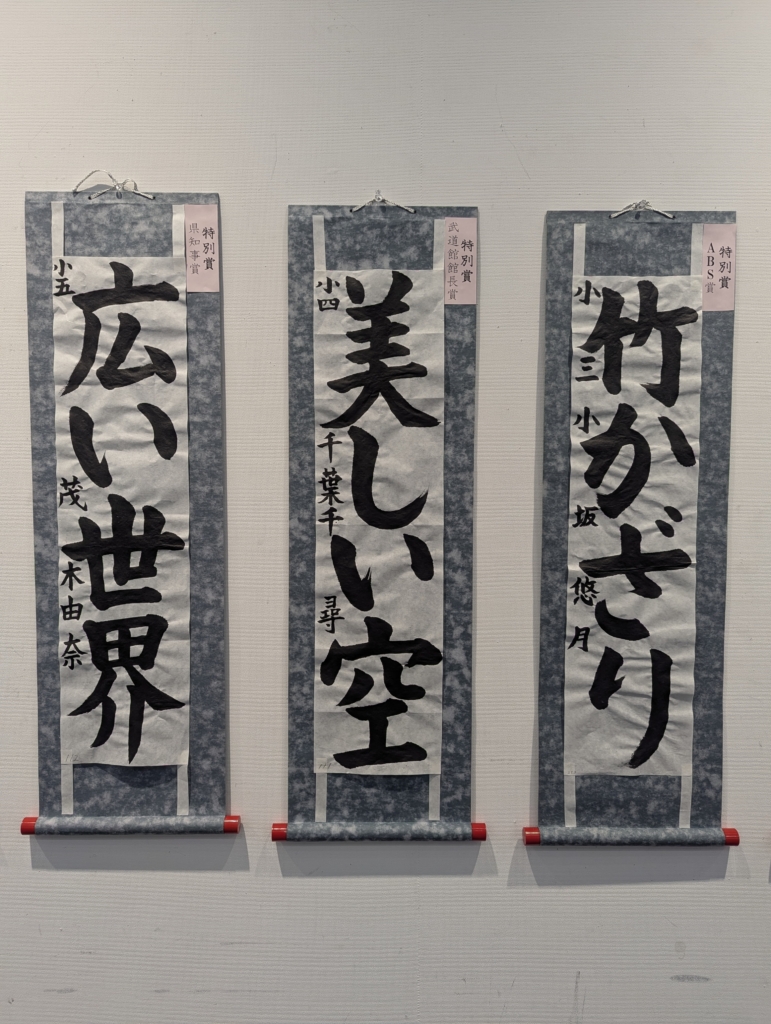 特別賞
県知事賞
広い世界
小五 茂木由奈
特別賞
武道館館長賞
美しい空
小四 千葉千尋
特別賞
ABS賞
竹かざり
小三 小坂悠月